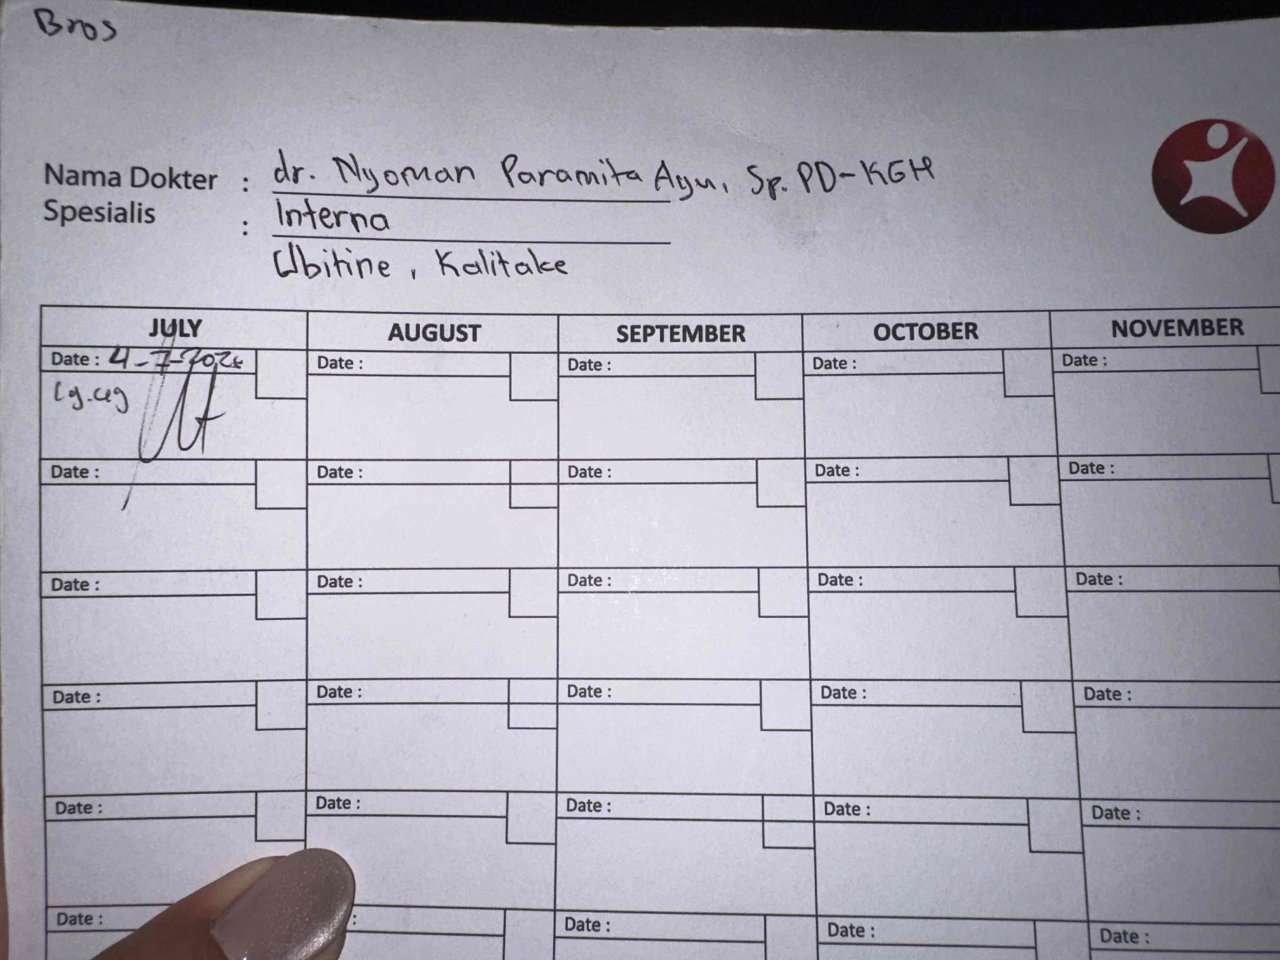 Bros
Nama Dokter : dr. Nyoman Paramita Ayu, Sp. PD-KGH
Spesialis : Interna
Ubitine, Kalitake
JULY AUGUST SEPTEMBER OCTOBER NOVEMBER
Date : 4-7-2024 Date : Date : Date : Date :
Date : Date : Date : Date : Date :
Date : Date : Date : Date : Date :
Date : Date : Date : Date : Date :
Date : Date : Date : Date : Date :
Date : : Date : Date : Date :